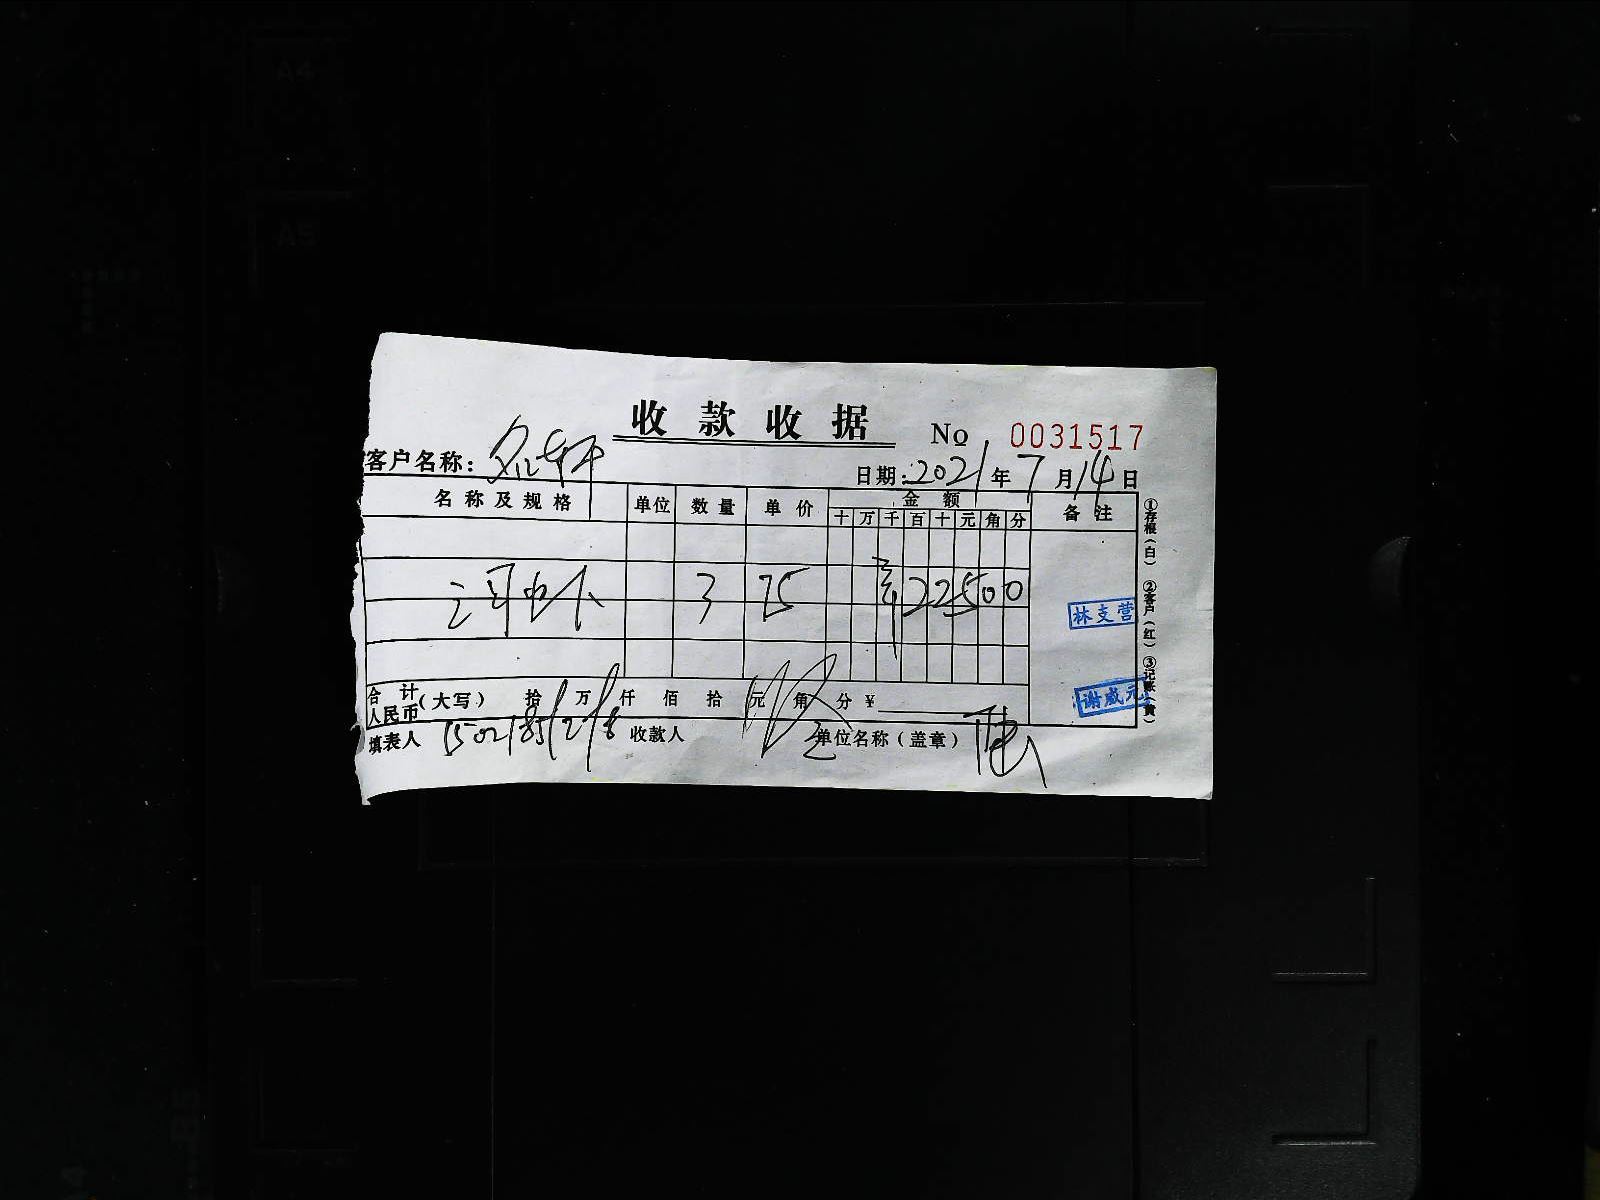 A4
A5
收款收据 No 0031517
客户名称：
日期：2021年7月14日
名称及规格 单位 数量 单价 金额 备注
十 万 千 百 十 元 角 分
3 75 22500
林支营
谢威元
合计人民币（大写） 拾 万 仟 佰 拾 元 角 分 ¥
填表人 收款人 单位名称（盖章）
①存根（白） ②客户（红） ③记账（黄）
B5